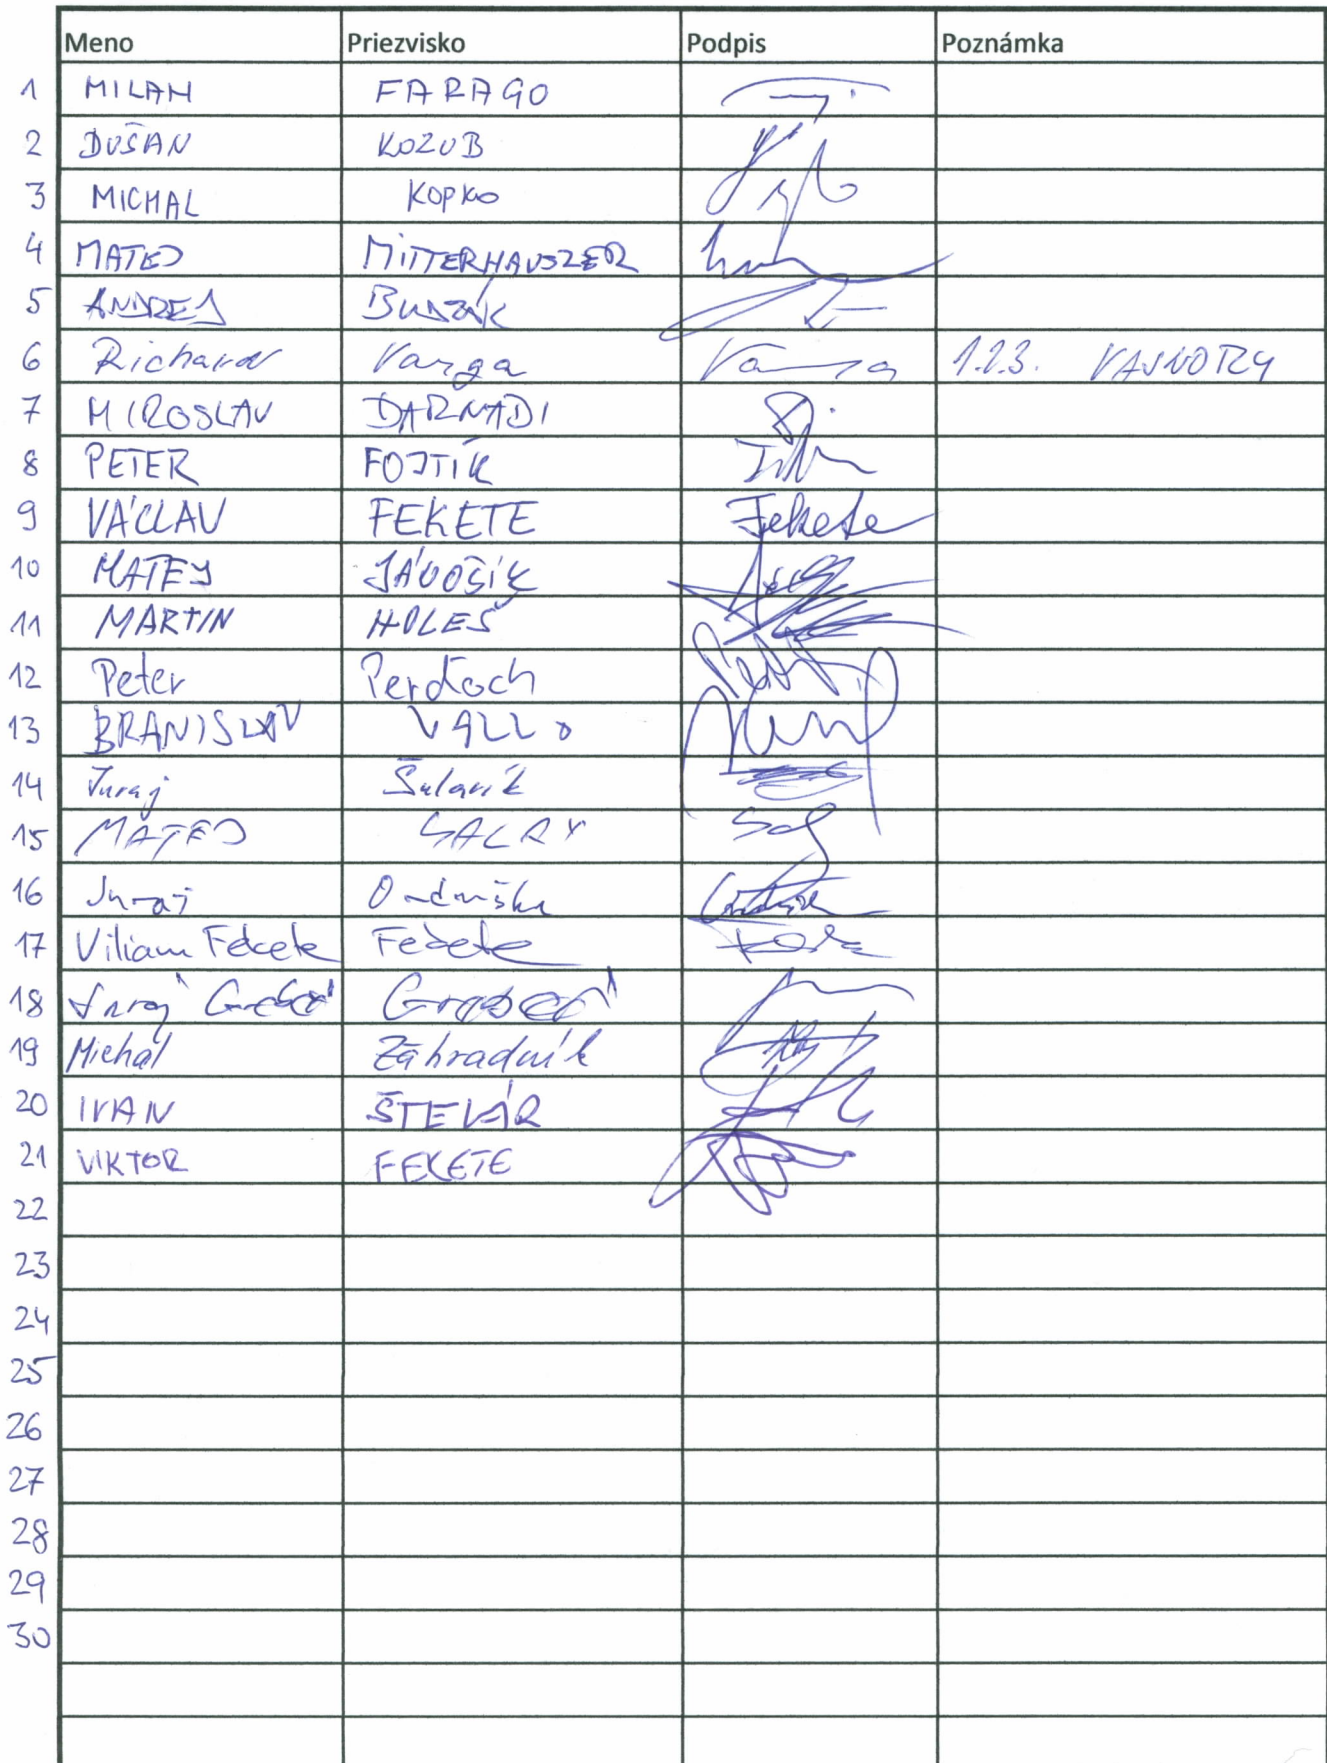 Meno Priezvisko Podpis Poznámka
1 MILAN FARAGO
2 DUŠAN KOZUB
3 MICHAL KOPKO
4 MATEJ MITTERHAUSZER
5 ANDREJ BUDZÁK
6 Richard Varga Varga 1.2.3. VAJNORY
7 MIROSLAV DARNADI
8 PETER FOJTÍK
9 VÁCLAV FEKETE Fekete
10 MATEJ JÁNOŠÍK
11 MARTIN HOLEŠ
12 Peter Perďoch
13 BRANISLAV VALLO
14 Juraj Šulavík
15 MATEJ SALAY
16 Juraj Ondruška
17 Viliam Fekete Fekete
18 Juraj
19 Michal Záhradník
20 IVAN ŠTEVÁR
21 VIKTOR FEKETE
22
23
24
25
26
27
28
29
30